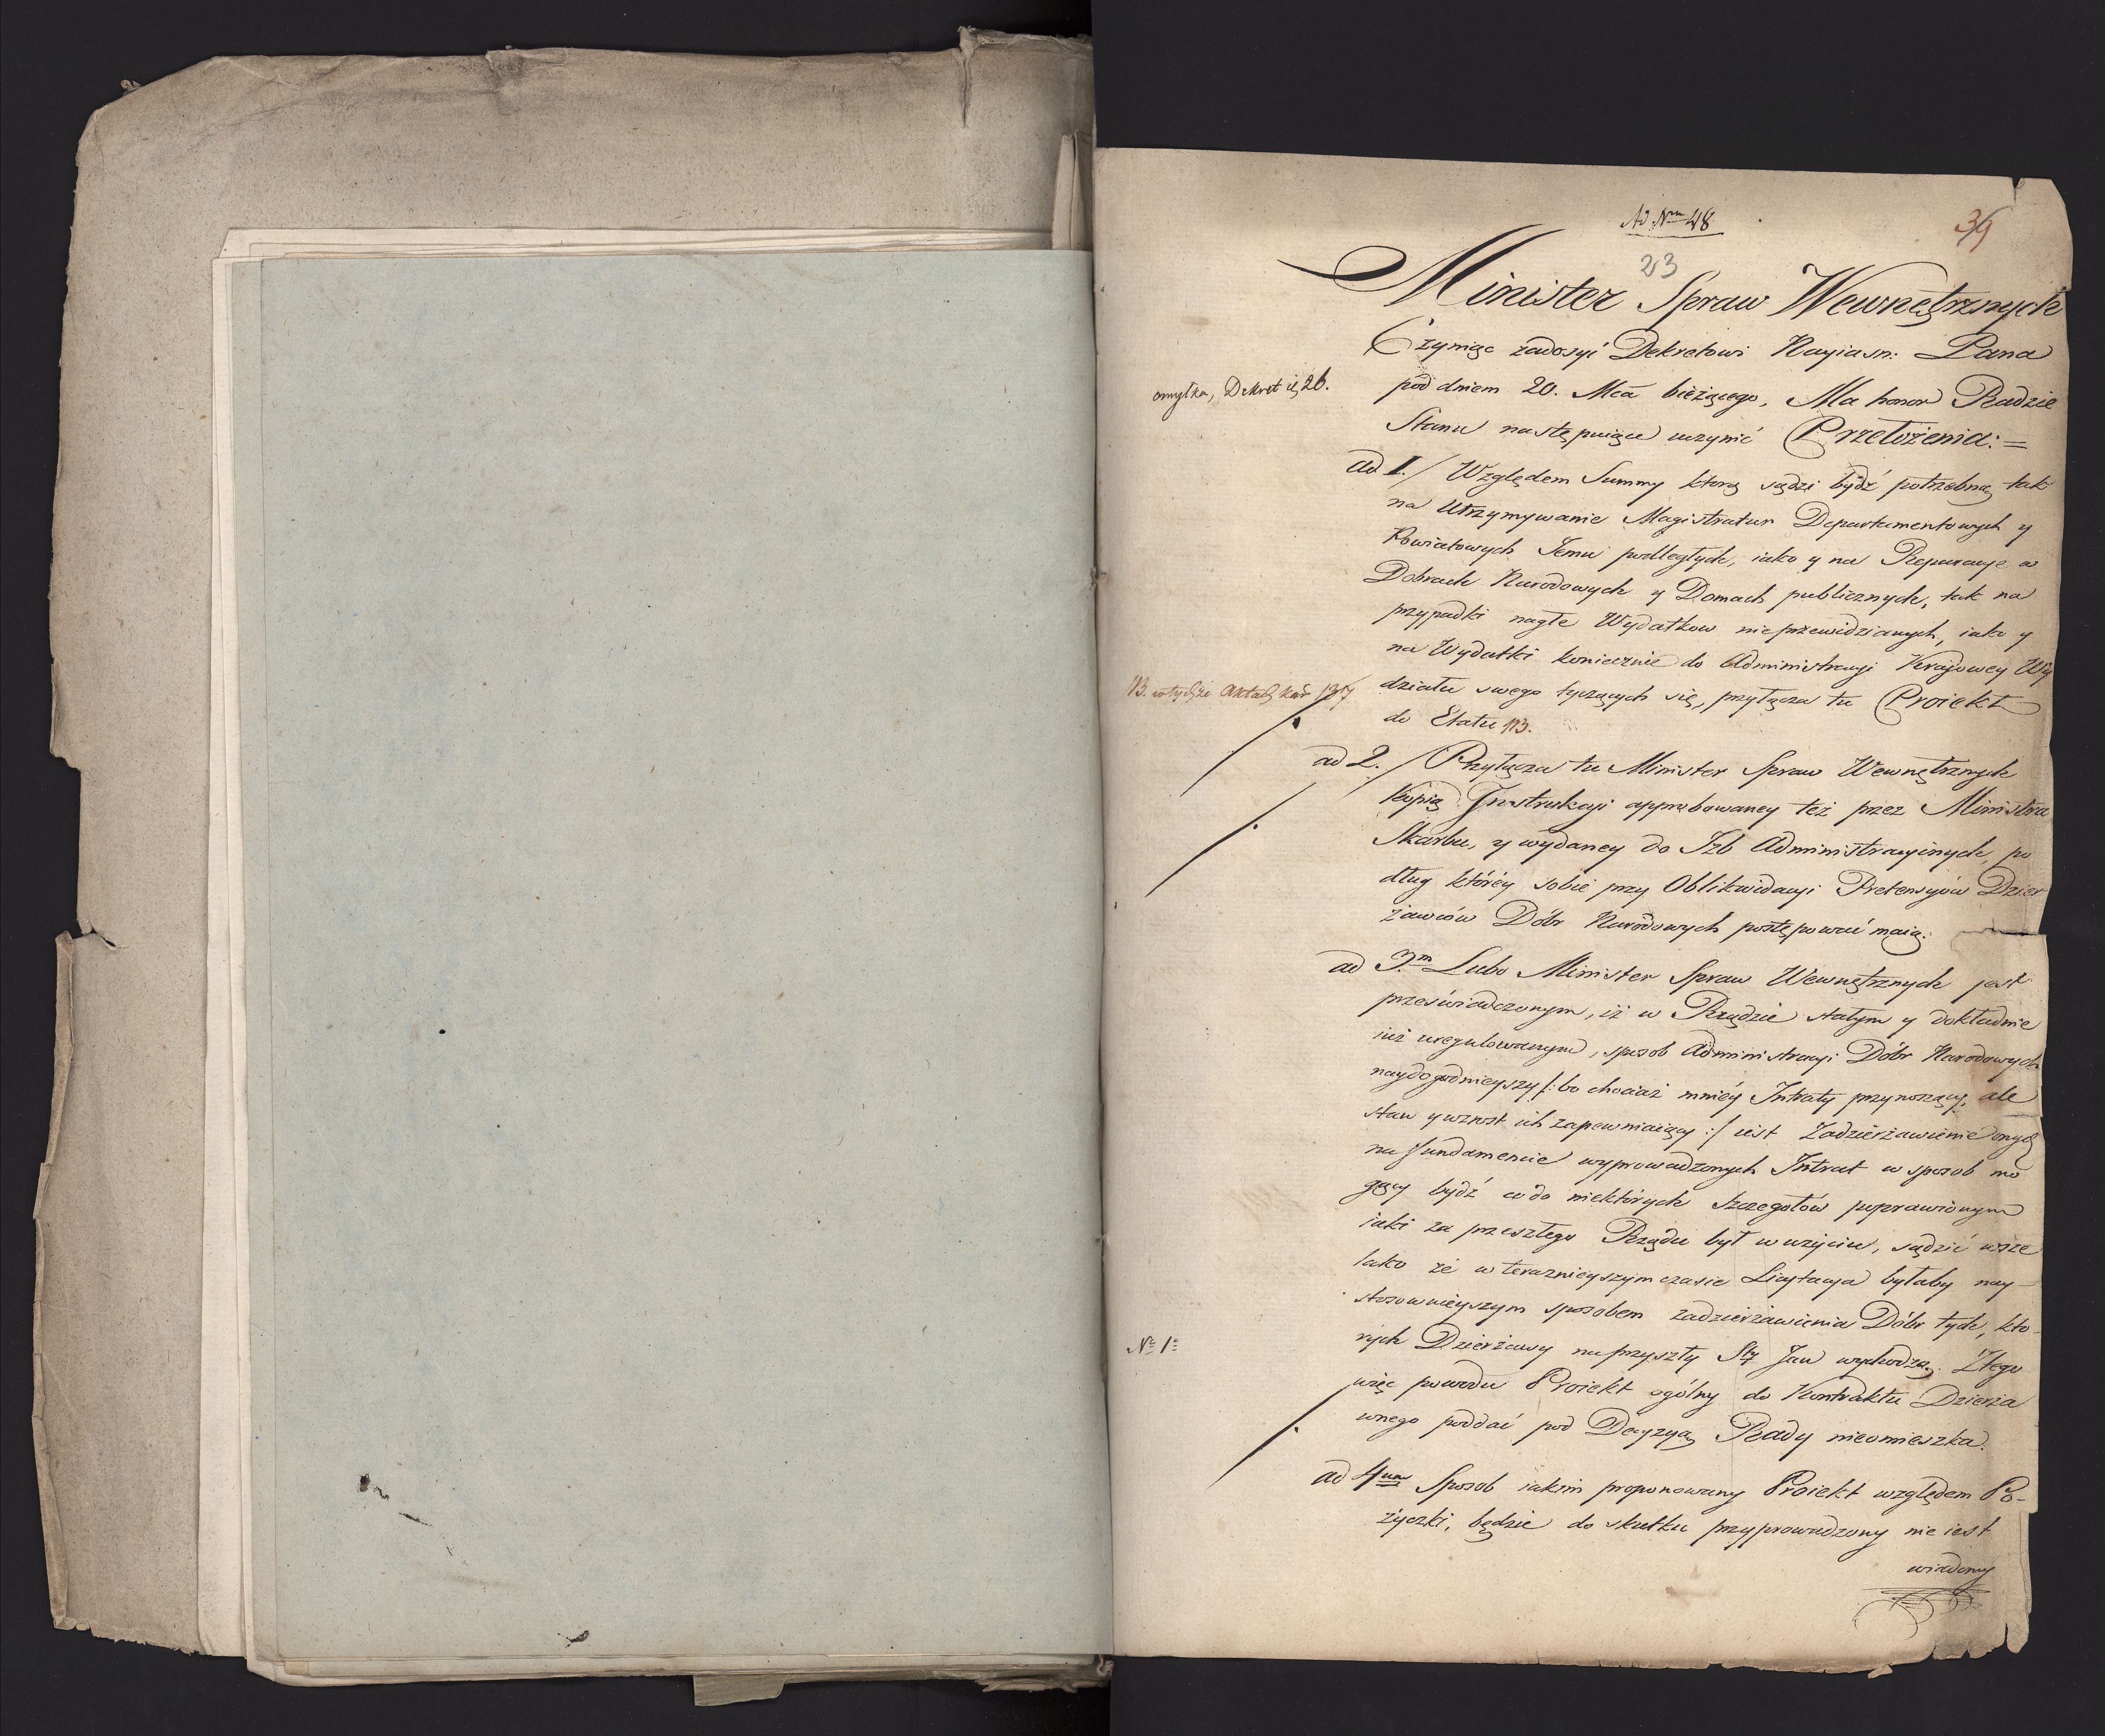 Ad Nrm 48
39
23
Minister Spraw Wewnętrznych
Czyniąc zadosyć Dekretowi Nayiasn: Pana
omyłka, Dekret iest 26.
pod dniem 20. Mca bieżącego, Ma honor Radzie
Stanu następuiące uczynić Przełożenia:=
ad I./ Względem Summy ktorą sądzi bydź potrzebną tak
na Utrzymywanie Magistratur Departamentowych y
Powiatowych Jemu podległych, iako y na Reparacye w
Dobrach Narodowych y Domach publicznych, tak na
przypadki nagłe Wydatkow nieprzewidzianych, iako y
na Wydatki koniecznie do Administracyi Krajowey Wy
działu swego tyczących się, przyłącza tu Proiekt
113. w tychże Aktach kar 137
do Etatu 113.
ad 2./ Przyłącza tu Minister Spraw Wewnętrznych
Kopią Instrukcyi approbowaney też przez Ministra
Skarbu, y wydaney do Izb Administracyinych, po
dług któréy sobie przy Oblikwidacyi Pretensyów Dzier
żawców Dóbr Narodowych postępować maią.
ad 3.m Lubo Minister Spraw Wewnętrznych jest
przeświadczonym, iż w Rządzie stałym y dokładnie
iuż uregulowanym, sposob Administracyi Dóbr Narodowych
naydogodnieyszy /: bo chociaż mniéy Intraty przynoszący, ale
stan y wzrost ich zapewniaiący :/ iest Zadzierżawienie onych
na fundamencie wyprowadzonych Intrat w sposob mo
gący bydź co do niektórych szczegołów poprawionym
iaki za przeszłego Rządu był w użyciu, sądzić wsze
lako że w teraznieyszym czasie Licytacya byłaby nay-
stosownieyszym sposobem zadzierżawienia Dóbr tych, kto-
rych Dzierżawy na przyszły Sty Jan wychodzą. Z tego
No 1o
więc powodu Proiekt ogólny do Kontraktu Dzierża
wnego poddać pod Decyzyą Rady nieomieszka.
ad 4um Sposob iakim proponowany Proiekt względem Po-
życzki, będzie do skutku przyprowadzony nie iest
wiadomy